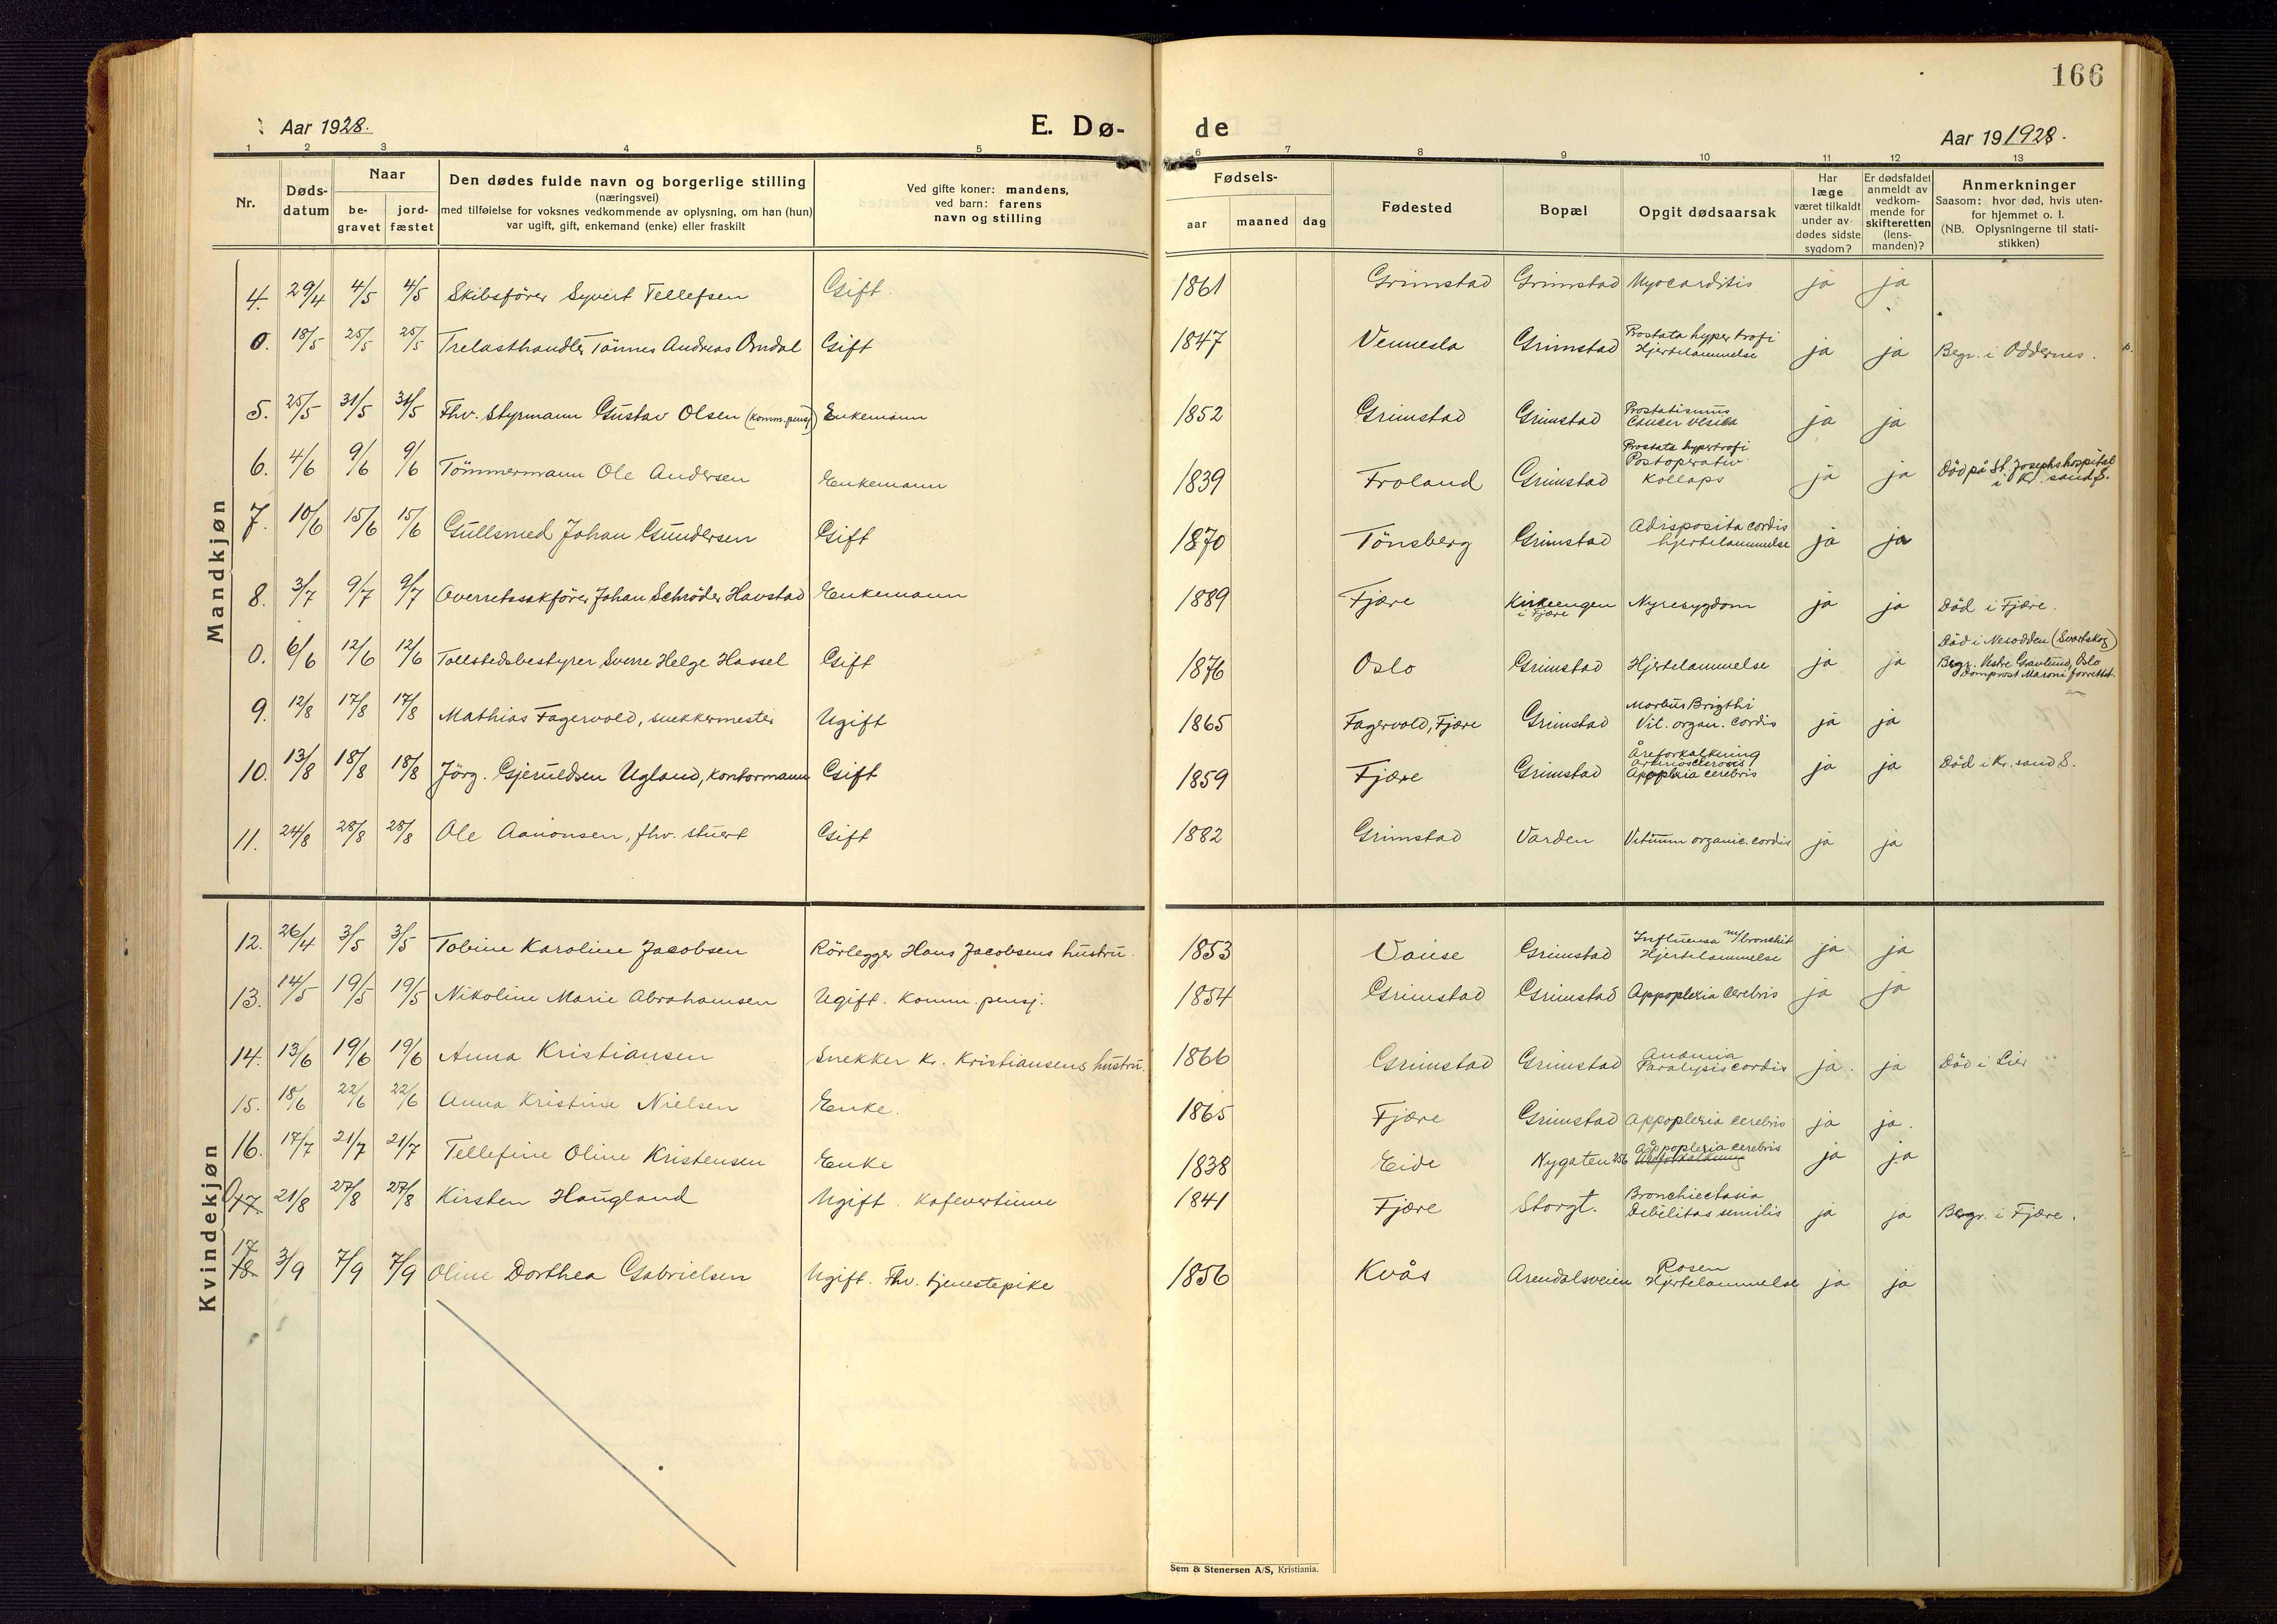 166
Aar 1928.
E. Dø-
de
Aar 19 1928.
1 2 3 4 5 6 7 8 9 10 11 12 13
Nr.
Døds-
datum
Naar
be-
gravet
jord-
fæstet
Den dødes fulde navn og borgerlige stilling
(næringsvei)
med tilføielse for voksnes vedkommende av oplysning, om han (hun)
var ugift, gift, enkemand (enke) eller fraskilt
Ved gifte koner: mandens,
ved barn: farens
navn og stilling
Fødsels-
aar maaned dag
Fødested
Bopæl
Opgit dødsaarsak
Har
læge
været tilkaldt
under av-
dødes sidste
sygdom?
Er dødsfaldet
anmeldt av
vedkom-
mende for
skifteretten
(lens-
manden)?
Anmerkninger
Saasom: hvor død, hvis uten-
for hjemmet o. l.
(NB. Oplysningerne til stati-
stikken)
Mandkjøn
4. 29/4 4/5 4/5 Skibsfører Syvert Tellefsen Gift. 1861 Grimstad Grimstad Myocarditis ja ja
0. 18/5 25/5 25/5 Trelasthandler Tönnes Andreas Omdal Gift 1847 Vennesla Grimstad Prostata hypertrofi
Hjertelammelse ja ja Begr. i Oddernes.
5. 25/5 31/5 31/5 Fhv. Styrmann Gustav Olsen (komm. pensj) Enkemann 1852 Grimstad Grimstad Prostatismus
Cancer vesica ja ja
6. 4/6 9/6 9/6 Tömmermann Ole Andersen Enkemann 1839 Froland Grimstad Prostata hypertrofi
Postoperativ
kollaps ja ja Död på St. Josephs hospital
i Kr. sand S.
7. 10/6 15/6 15/6 Gullsmed Johan Gundersen Gift 1870 Tönsberg Grimstad Adisposita cordis
hjertelammelse ja ja
8. 3/7 9/7 9/7 Overretssakförer Johan Schröder Havstad Enkemann 1889 Fjære Kirkeengen
i Fjære Nyresygdom ja ja Död i Fjære.
0. 6/6 12/6 12/6 Tollstedsbestyrer Sverre Helge Hassel Gift 1876 Oslo Grimstad Hjertelammelse ja ja Död i Nesodden (Svartskog)
Begr. Vestre Gravlund, Oslo
Domprost Maroni forrettet.
9. 12/8 17/8 17/8 Mathias Fagervold, snekkermester Ugift 1865 Fagervold, Fjære Grimstad Morbus Brigthi
Vit. organ. cordis ja ja
10. 13/8 18/8 18/8 Jörg. Gjeruldsen Ugland, kontormann Gift 1859 Fjære Grimstad Åreforkalkning
arteriosclerosis
Apoplexia cerebris ja ja Död i Kr. sand S.
11. 24/8 28/8 28/8 Ole Aanonsen, fhv. stuert Gift 1882 Grimstad Varden Vitium organic. cordis ja ja
Kvindekjøn
12. 26/4 3/5 3/5 Tobine Karoline Jacobsen Rörlegger Hans Jacobsens hustru. 1853 Vanse Grimstad Influensa m/bronchit
Hjertelammelse ja ja
13. 14/5 19/5 19/5 Nikoline Marie Abrahamsen Ugift. Komm. pensj. 1854 Grimstad Grimstad Appoplexia cerebris ja ja
14. 13/6 19/6 19/6 Anna Kristiansen Snekker Kr. Kristiansens hustru. 1866 Grimstad Grimstad Anæmia
Paralysis cordis ja. ja Död i Lier
15. 18/6 22/6 22/6 Anna Kristine Nielsen Enke. 1865 Fjære Grimstad Appoplexia cerebris ja ja.
16. 17/7 21/7 21/7 Tellefine Oline Kristensen Enke 1838 Eide Nygaten 256 Appoplexia cerebris
ja ja
0 17. 21/8 27/8 27/8 Kirsten Haugland Ugift. Kafevertinne 1841 Fjære Storgt. Bronchiectasia
Debilitas senilis ja ja Begr. i Fjære.
17
18 3/9 7/9 7/9 Oline Dorthea Gabrielsen Ugift. Fhv. tjenestepike 1856 Kvås Arendalsveien Rosen
Hjertelammelse ja ja
Sem & Stenersen A/S, Kristiania.